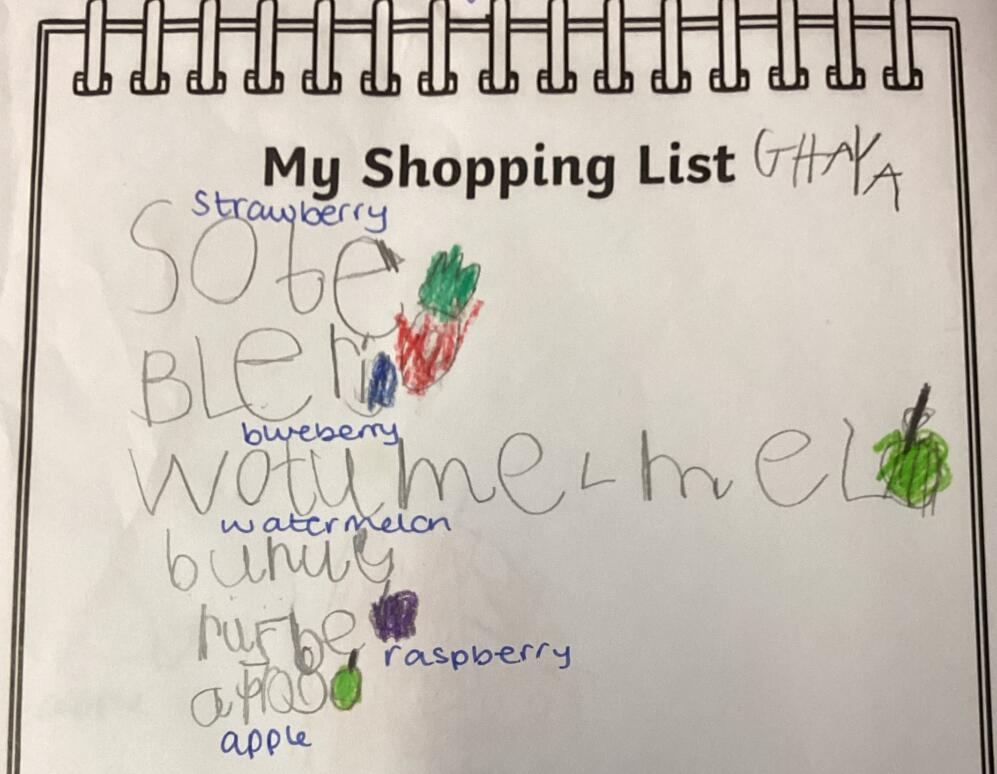 My Shopping List GHAYA
Strawberry
Sobe
BLeri
blueberry
wotumeLmeL
watermelon
bunuy
rusbe
raspberry
apoo
apple